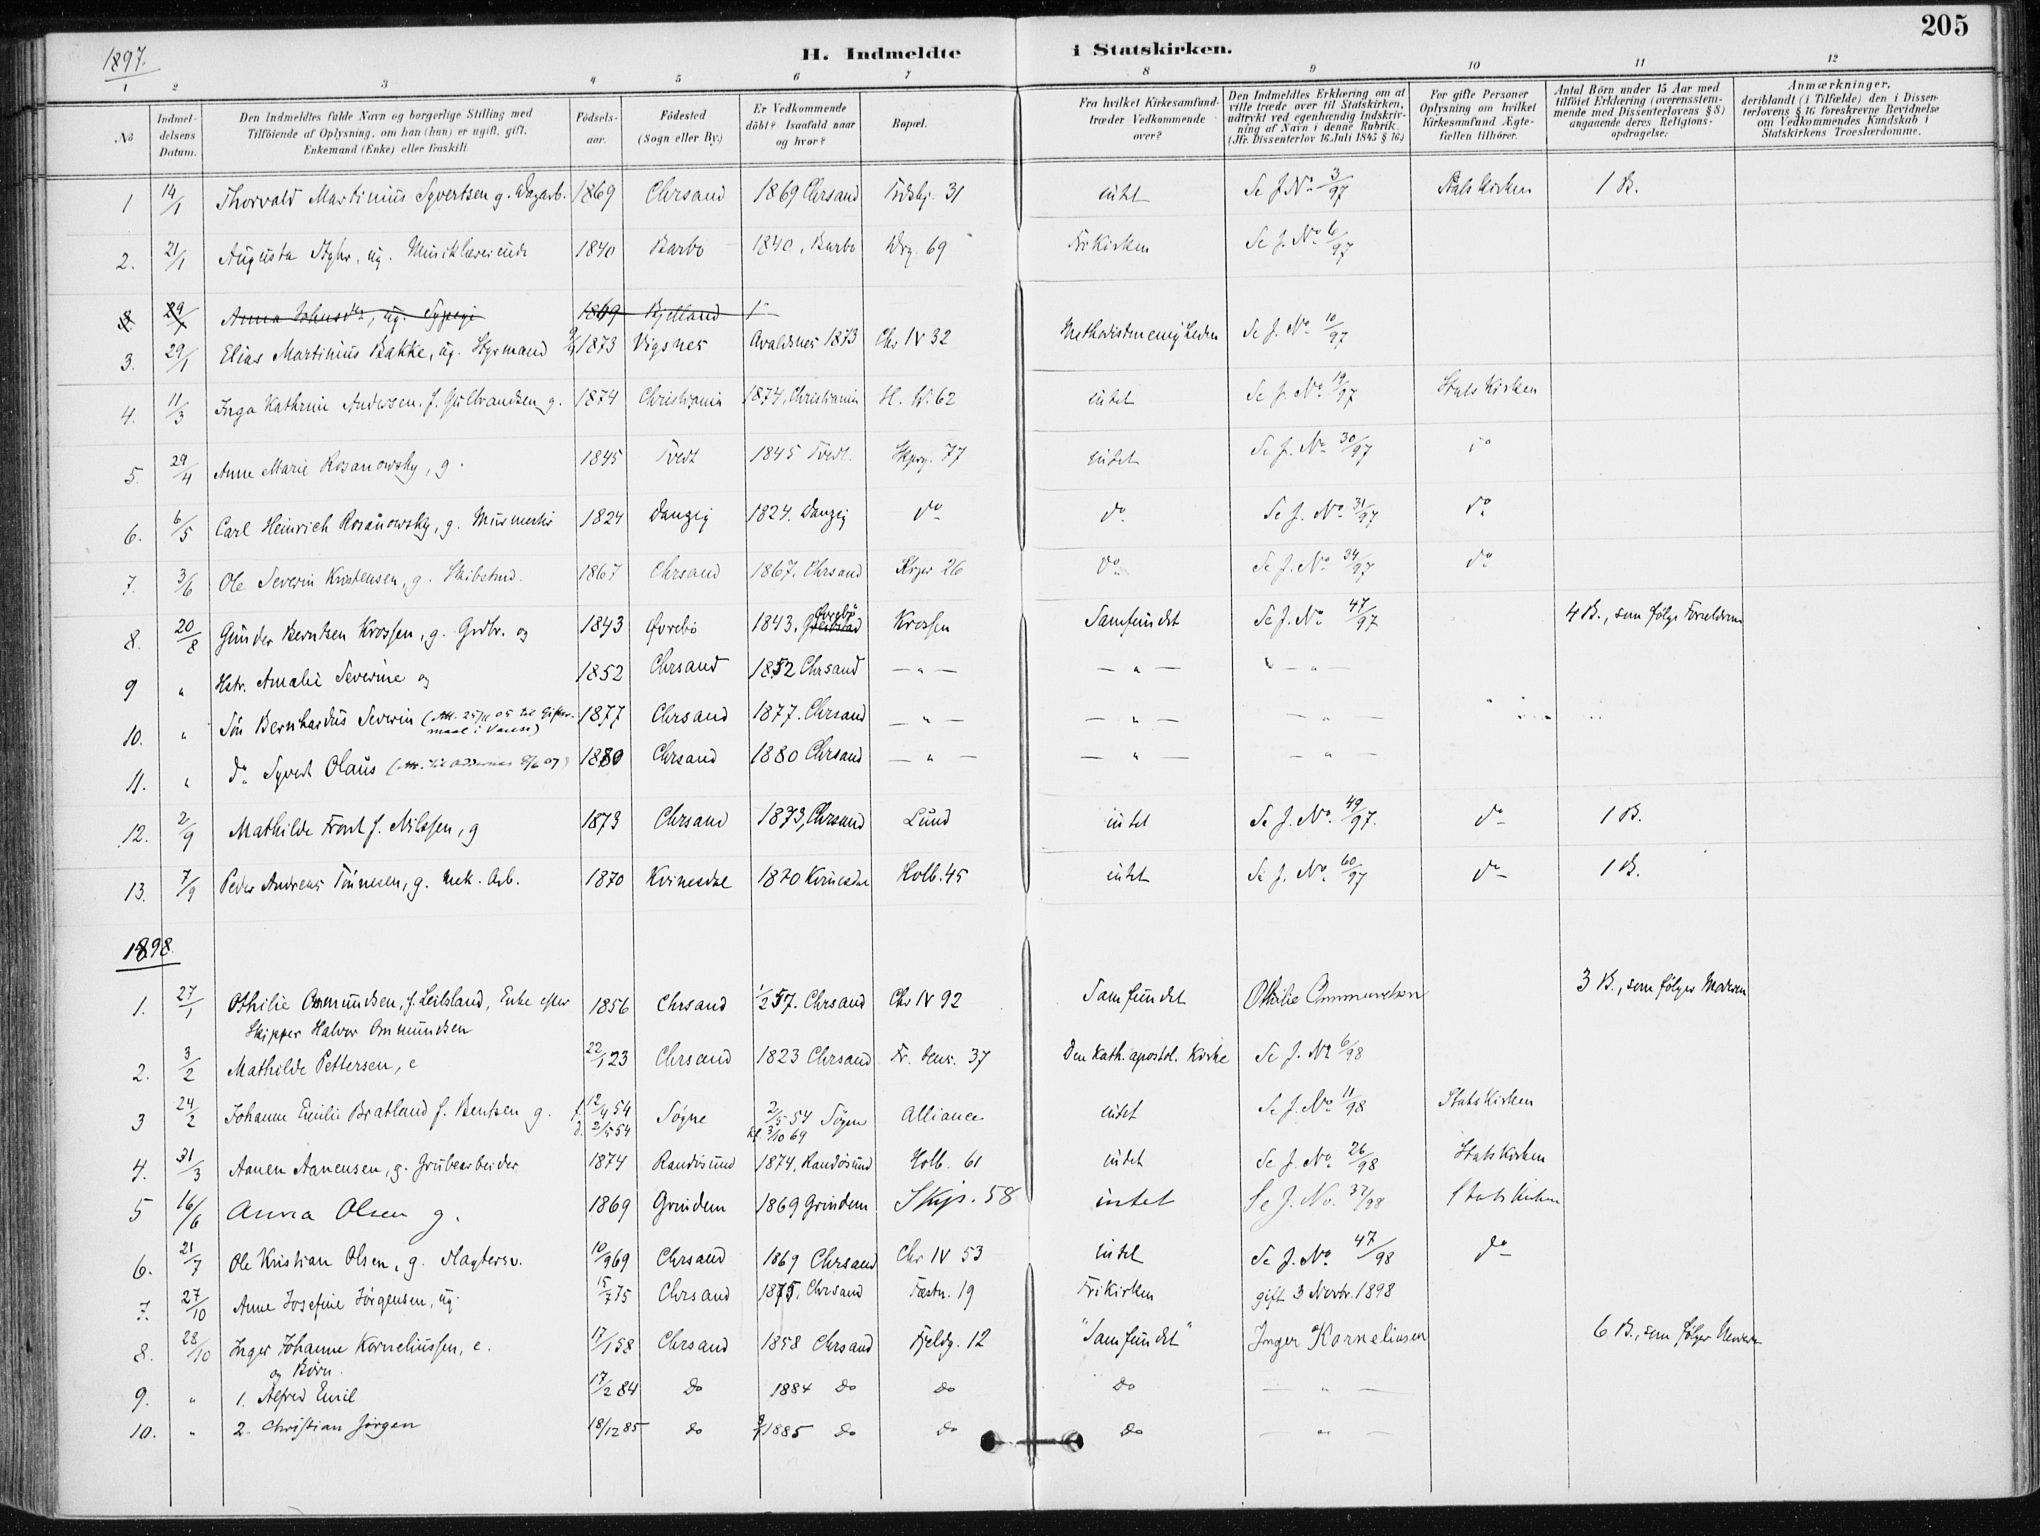 205
1897.
H. Indmeldte i Statskirken.
1 2 3 4 5 6 7 8 9 10 11 12
No
Indmeldelsens Datum.
Den Indmeldtes fulde Navn og borgerlige Stilling med Tilføiende af Oplysning, om han (hun) er ugift, gift, Enkemand (Enke) eller fraskilt.
Fødselsaar.
Fødested (Sogn eller By.)
Er Vedkommende døbt? Isaafald naar og hvor?
Bopæl.
Fra hvilket Kirkesamfund træder Vedkommende over?
Den Indmeldtes Erklæring om at ville træde over til Statskirken, udtrykt ved egenhændig Indskrivning af Navn i denne Rubrik. (Jfr. Dissenterlov 16. Juli 1845 § 16.)
For gifte Personer Oplysning om hvilket Kirkesamfund Ægtefællen tilhører.
Antal Børn under 15 Aar med tilføiet Erklæring (overensstemmende med Dissenterlovens § 8) angaaende deres Religionsopdragelse:
Anmærkninger, deriblandt (i Tilfælde) den i Dissenterlovens § 16 foreskrevne Bevidnelse om Vedkommendes Kundskab i Statskirkens Troeslærdomme.
1 14/1 Thorvald Martinius Syvertsen g. Dagarb. 1869 Chrsand 1869 Chrsand 31 intet Se J. No 3/97 Statskirken 1 B.
2. 21/1 Augusta ug. Musiklærerinde 1840 Barbo 1840, Barbo Drg. 69 Frikirken Se J. No 6/97
29/1 Anna ug. Sypige 1869 Bjelland
3. 29/1 Elias Martinius Bakke, ug. Styrmand 1873 Vigsnes Avaldsnes 1873 Chr IV 32 Methodistmenigheden Se J. No 10/97
4. 11/3 Inga Kathrine Andersen, f. Gulbrandsen g. 1874 Christiania 1874, Christiania H. W. 62 intet Se J. No 19/97 Statskirken
5. 29/4 Anne Marie Rosanowsky, g. 1845 Tvedt 1845 Tvedt. 77 intet Se J. No 30/97 do
6. 6/5 Carl Heinrich Rosanowsky, g. Murmester 1824 Danzig 1824. Danzig do do Se J. No 31/97 do
7. 3/6 Ole Severin Kristensen, g. 1867 Chrsand 1867. Chrsand 26 do Se J. No 34/97 do
8. 20/8 Gunder Berntsen Krossen, g. Grdbr. og 1843 Øvrebø 1843, Øvrebö Krossen Samfundet Se J. No 47/97 4 B., som følge Forældrene
9 " Hstr. Amalie Severine og 1852 Chrsand 1852 Chrsand — " — — " — — " —
10. " Søn Bernhardus Severin (Att. 25/11 05 til Giftermaal i Vanse) 1877 Chrsand 1877. Chrsand — " — — " — — " —
11. " do Syvert Olaus 1880 Chrsand 1880 Chrsand — " — — " — — " —
12. 2/9 Mathilde Front f. Nilssen, g 1873 Chrsand 1873, Chrsand Lund intet Se J. No. 49/97. do 1 B.
13. 7/9 Peder Andreas Tönnesen, g. Mek. Arb. 1870 Kvinesdal 1870 Kvinesdal Holb. 45 intet Se J. No. 60/97 do 1 B.
1898.
1. 27/1 Othilie Ommundsen, f. Leitsland, Enke efter Skipper Halvor Ommundsen 1856 Chrsand 1/2 57. Chrsand Chr IV 92 Samfundet Othilie Ommundsen 3 B., som følger Moderen
2. 3/2 Mathilde Pettersen, e 22/1 23 Chrsand 1823 Chrsand 37 Den Kath. apostol. Kirke Se J. No 6/98
3 24/2 Johanne Emilie Bratland f. Bentsen g. f. 12/4 54 d. 2/5 54 Søgne 2/5 54 Sögne kf. 3/10 69 Alliance intet Se J. No 11/98 Statskirken
4. 31/3 Aanen Aanensen, g. Grubearbeider 1874 Randøsund 1874, Randösund Holb. 61 intet Se J. No. 26/98 Statskirken
5 16/6 Anna Olsen g. 1869 Grindem 1869 Grindem Skip. 58 intet Se J. No. 37/98 Statskirken
6. 21/7 Ole Kristian Olsen, g. Slagtersv. 10/9 69 Chrsand 1869 Chrsand Chr IV 53 intet Se J. No 47/98 do
7. 27/10 Anne Josefine Jørgensen, ug. 15/7 75 Chrsand 1875, Chrsand Fæstn. 19 Frikirken gift 3 Novbr. 1898
8. 28/10 Inger Johanne Korneliussen, e. og Børn. 17/1 58 Chrsand 1858 Chrsand Fjeldg. 12 "Samfundet" Inger Korneliusen 6 B., som følger Moderen
9. " 1. Alfred Emil 17/2 84 do 1884 do do do — " —
10. " 2. Christian Jørgen 18/12 85 do 1885 do do do — " —